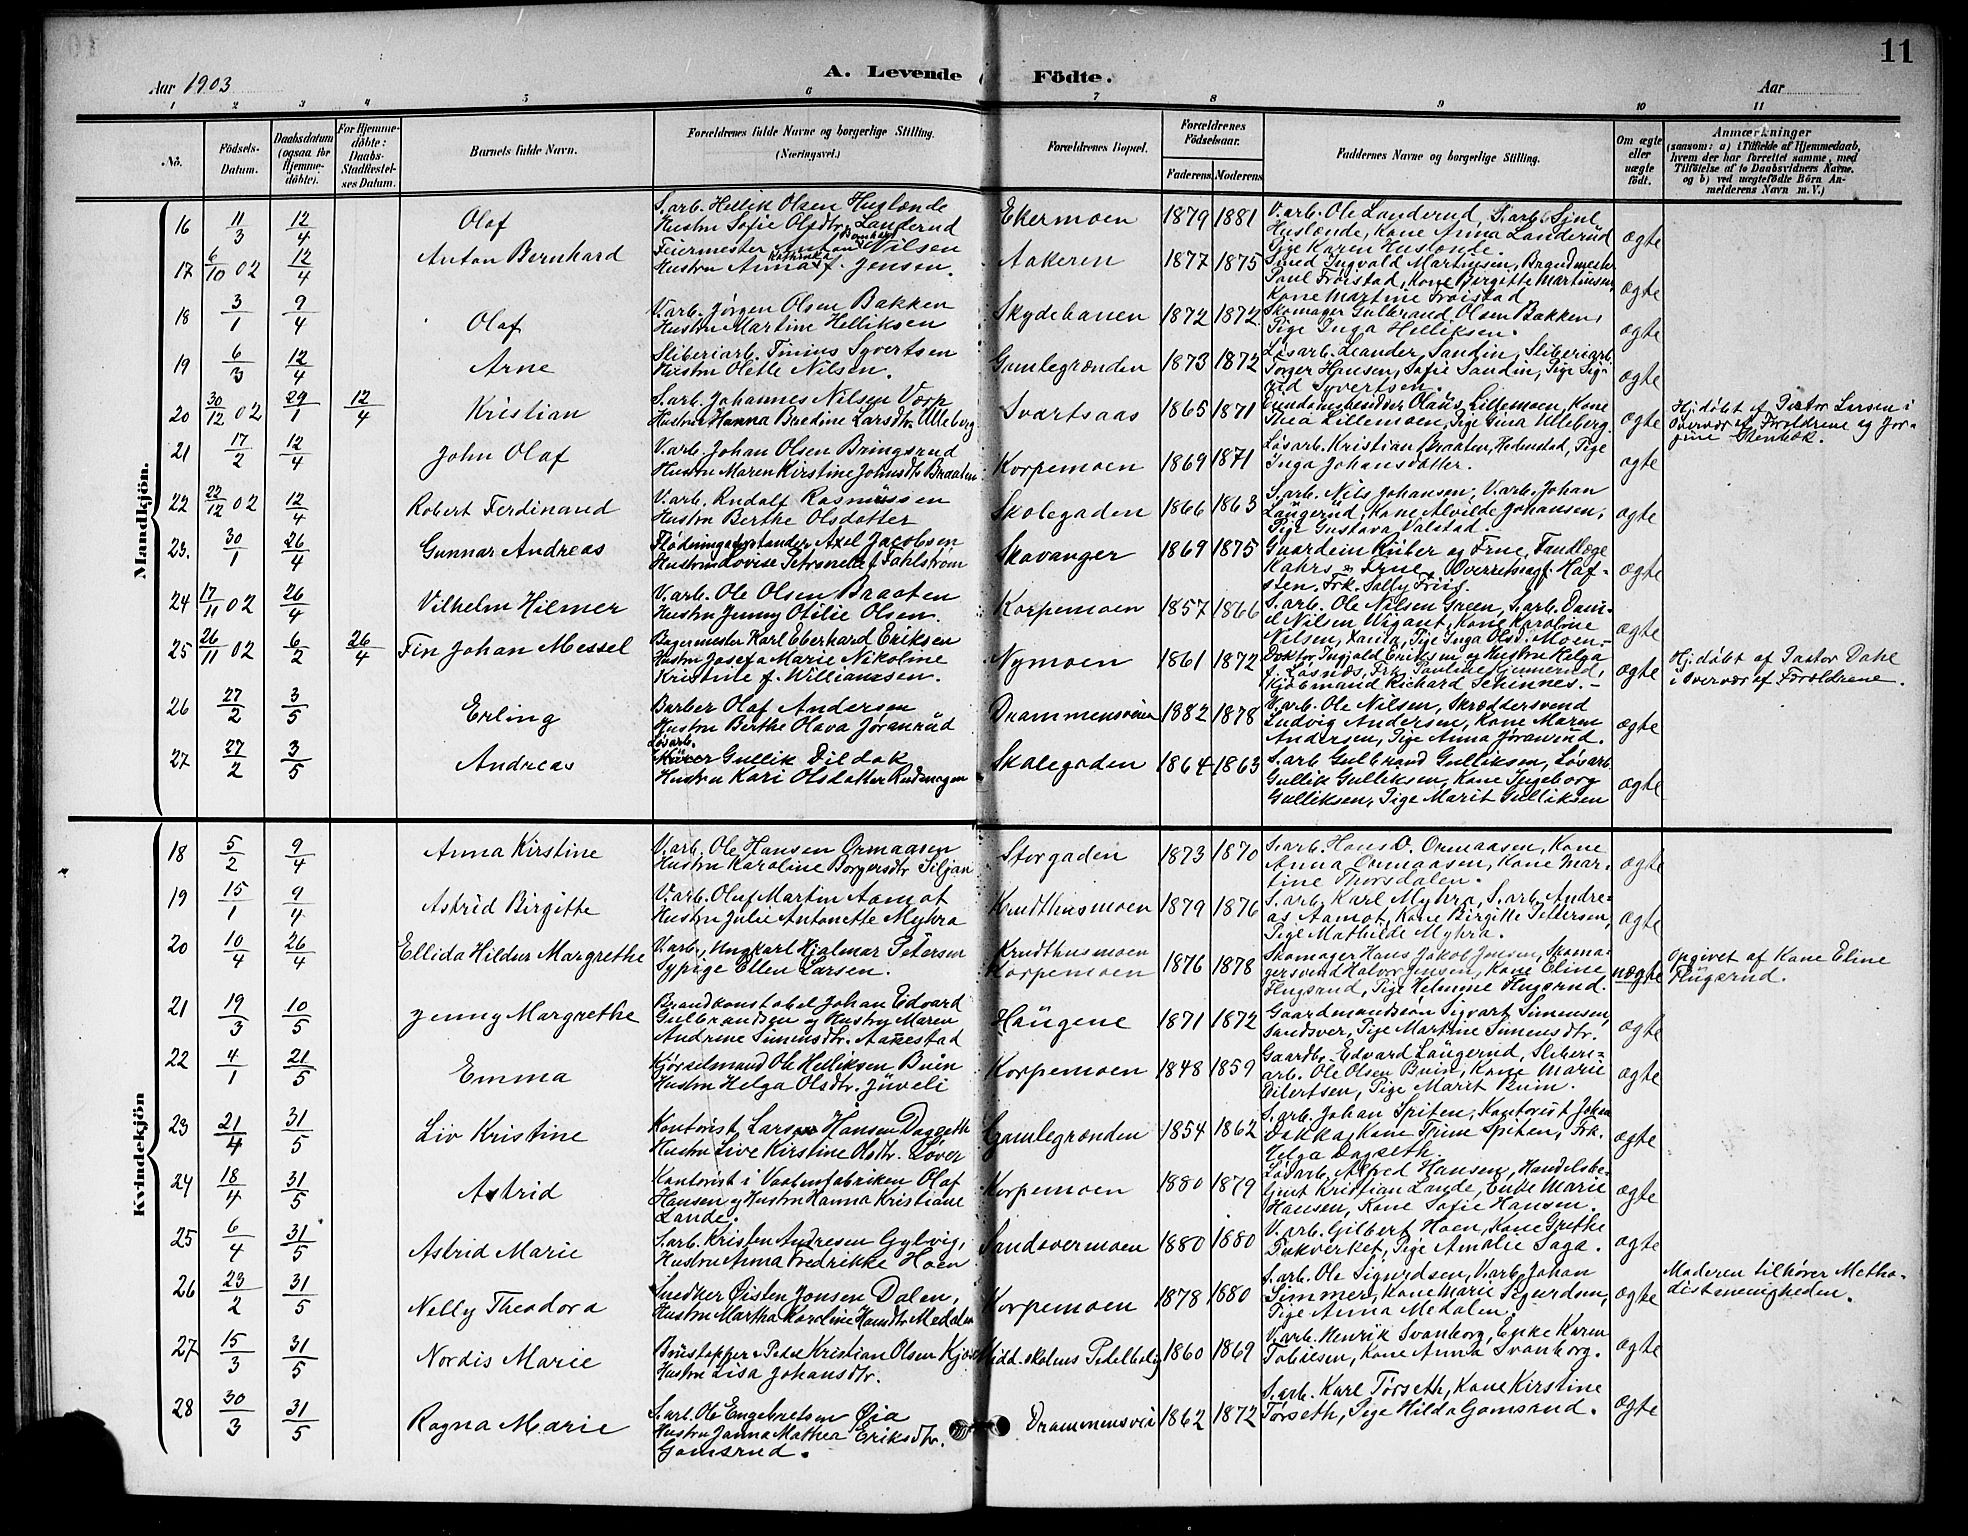 11
Aar 1903
A. Levende Födte.
Aar
1 2 3 4 5 6 7 8 9 10 11
No.
Födsels-Datum.
Daabsdatum (ogsaa for Hjemme-döbte).
For Hjemme-döbte: Daabs-Stadfæstel-ses Datum.
Barnets fulde Navn.
Forældrenes fulde Navne og borgerlige Stilling. (Næringsvei.)
Forældrenes Bopæl.
Forældrenes Födselsaar.
Faderens.
Moderens
Faddernes Navne og borgerlige Stilling.
Om ægte eller uægte födt.
Anmærkninger
(saasom: a) i Tilfælde af Hjemmedaab, hvem der har forrettet samme, med Tilföielse af to Daabsvidners Navne. og b) ved uægtefödte Börn An-melderens Navn m. V.)
Mandkjön.
16 11/3 12/4 Olaf
S.arb. Hellik Olsen Huslænde
Hustru Sofie Olsdtr. Landerud
Ekermoen 1879 1881
V.arb. Ole Landerud, S.arb. Sjul
Huslænde, Kone Anna Landerud
Pige Karen Huslænde.
ægte
17 6/10 02 12/4 Anton Bernhard
Feiermester Anton Bernhard Nilsen
Hustru Anna Kathinka f. Jensen.
Aakeren 1877 1875
Smed Ingvald Martinsen, Brandmester
Paul Frøistad, Kone Birgitte Martinsen,
Kone Martine Frøistad
ægte
18 3/1 9/4 Olaf
V.arb. Jørgen Olsen Bakken
Hustru Martine Helliksen
Skydebanen 1872 1872
Skomager Gulbrand Olsen Bakken,
Pige Inga Helliksen.
ægte
19 6/3 12/4 Arne
Sliberiarb. Tinius Syvertsen
Hustru Olette Nilsen.
Gamlegrænden 1873 1872
Løsarb. Leander Sandin, Sliberiarb.
Torger Hansen, Sofie Sandin, Pige Sig-
rid Syvertsen.
ægte
20 30/12 02 29/1 12/4 Kristian
S.arb. Johannes Nilsen Værp
Hustru Hanna Bredine Larsdtr. Ulleberg
Svartsaas 1865 1871
Eiendomsbesidder Olaus Lillemoen, Kone
Thea Lillemoen, Pige Gina Ulleberg.
ægte
Hj.døbt af Pastor Larsen i
Overvær af Forældrene og Jor-
gine Stenbæk.
21 17/2 12/4 John Olaf
V.arb. Johan Olsen Bringsrud
Hustru Maren Kirstine Johnsdtr. Braaten
Korpemoen 1869 1871
Løsarb. Kristian Braaten, Hedenstad, Pige
Inga Johansdatter.
ægte
22 22/12 02 12/4 Robert Ferdinand
V.arb. Rudolf Rasmussen
Hustru Berthe Olsdatter
Skolegaden 1866 1863
S.arb. Nils Johansen, V.arb. Johan
Laugerud, Kone Alvilde Johansen,
Pige Gustava Valstad.
ægte
23. 30/1 26/4 Gunnar Andreas
Axel Jacobsen
Hustru Lovise Petronelle f. Fahlstrøm
Skavanger 1869 1875
Guardein Riiber og Frue, Tandlæge
Kahrs og Frue, Overremagf. Haf-
sten, Frk. Sally Friis.
ægte
24 17/11 02 26/4 Vilhelm Hilmer
V.arb. Ole Olsen Braaten
Hustru Jenny Otilie Olsen.
Korpemoen 1857 1866
S.arb. Ole Nilsen Green, S.arb. Dani-
el Nilsen Vigant, Kone Karoline
Nilsen, Pige Inga Olsd. Moen.
ægte
25 26/11 02 6/2 26/4 Fin Johan Messel
Bagermester Karl Eberhard Eriksen
Hustru Josefa Marie Nikoline
Kristine f. Williamsen.
Nymoen 1861 1872
Doktor Ingjald Eriksen og Hustru Helga
f. Løsnæs, Frk. Pauline Kjennerud,
Kjøbmand Richard Schinnes.
ægte
Hj.døbt af Pastor Dahl
i Overvær af Forældrene.
26 27/2 3/5 Erling
Barber Olaf Andersen
Hustru Berthe Olava Jøranrud
Drammensveien 1882 1878
V.arb. Ole Nilsen, Skræddersvend
Ludvig Andersen, Kone Maren
Andersen, Pige Anna Jøranrud.
ægte
27 27/2 3/5 Andreas
Løsarb. Gullik Dildok
Hustru Kari Olsdatter Rudsmogen
Skolegaden 1864 1863
S.arb. Gulbrand Gulliksen, Løsarb.
Gullik Gulliksen, Kone Ingeborg
Gulliksen, Pige Marit Gulliksen
ægte
Kvindekjön
18 5/2 9/4 Anna Kirstine
V.arb. Ole Hansen Ormaasen
Hustru Karoline Borgersdtr. Siljan
Storgaden 1873 1870
S.arb. Hans O. Ormaasen, Kone
Anna Ormaasen, Kone Mar-
tine Thorsdalen.
ægte
19 15/1 9/4 Astrid Birgitte
V.arb. Oluf Martin Aamot
Hustru Julie Antonette Myhra
Krudthusmoen 1879 1876
S.arb. Karl Myhra, S.arb. Andre-
as Aamot, Kone Birgitte Pettersen,
Pige Mathilde Myhra.
ægte
20 10/4 26/4 Ellida Hildur Margrethe
V.arb., Ungkarl Hjalmar Petersen
Sypige Ellen Larsen.
Krudthusmoen
Korpemoen 1876 1878
Skomager Hans Jakob Jensen, Skoma-
gersvend Halvor Jensen, Kone Eline
Flugsrud, Pige Helmine Flugsrud.
uægte
Opgivet af Kone Eline
Flugsrud.
21 19/3 10/5 Jenny Margrethe
Brandkonstabel Johan Edvard
Gulbrandsen og Hustru Maren
Andrine Simensdtr. Aanestad
Haugene 1871 1872
Gaardmandssøn Sigvart Simensen,
Sandsver, Pige Martine Simensdtr.
ægte
22 4/1 21/5 Emma
Kjørselmand Ole Helliksen Buin
Hustru Helga Olsdtr. Juveli
Korpemoen 1848 1859
Gaardbr. Edvard Laugerud, Sliberi-
arb. Ole Olsen Buin, Kone Marie
Eilertsen, Pige Marit Buin.
ægte
23 21/4 31/5 Liv Kristine
Kontorist Lars Hansen Dagseth
Hustru Live Kirstine Olsdtr. Løver
Gamlegrænden 1854 1862
S.arb. Johan Spiten, Kontorist Johan
Dokka, Kone Trine Spiten, Frk.
Helga Dagseth.
ægte
24 18/4 31/5 Astrid
Kontorist i Vaabenfabriken Olaf
Hansen og Hustru Hanna Kristiane
Lande.
Korpemoen 1880 1879
Løsarb. Alfred Hansen, Handelsbe-
tjent Kristian Lande, Enke Marie
Hansen, Kone Sofie Hansen.
ægte
25 6/4 31/5 Astrid Marie
S.arb. Kristen Andresen Gylvig,
Hustru Anna Fredrikke Hoen
Sandsvermoen 1880 1880
V.arb. Gilbert Hoen, Kone Grethe
Pukverket, Pige Amalie Saga.
ægte
26 23/2 31/5 Nelly Theodora
Snedker Øisten Jonsen Dalen,
Hustru Martha Karoline Hansdtr. Medalen
Korpemoen 1878 1880
S.arb. Ole Sigurdsen, V.arb. Johan
Simmer, Kone Marie Sigurdsen,
Pige Anna Medalen.
ægte
Moderen tilhører Metho-
distmenigheden.
27 15/3 31/5 Nordis Marie
Pedel Kristian Olsen
Hustru Lisa Johansdtr.
Midd.skolens Pedelbolig 1860 1869
V.arb. Henrik Svanborg, Enke Karen
Tobiesen, Kone Anna Svanborg.
ægte
28 30/3 31/5 Ragna Marie
S.arb. Ole Engebretsen Øia
Hustru Janna Mathea Eriksdtr.
Gomsrud.
Drammensvei 1862 1872
S.arb. Karl Tørseth, Kone Kirstine
Tørseth, Pige Hilda Gomsrud.
ægte